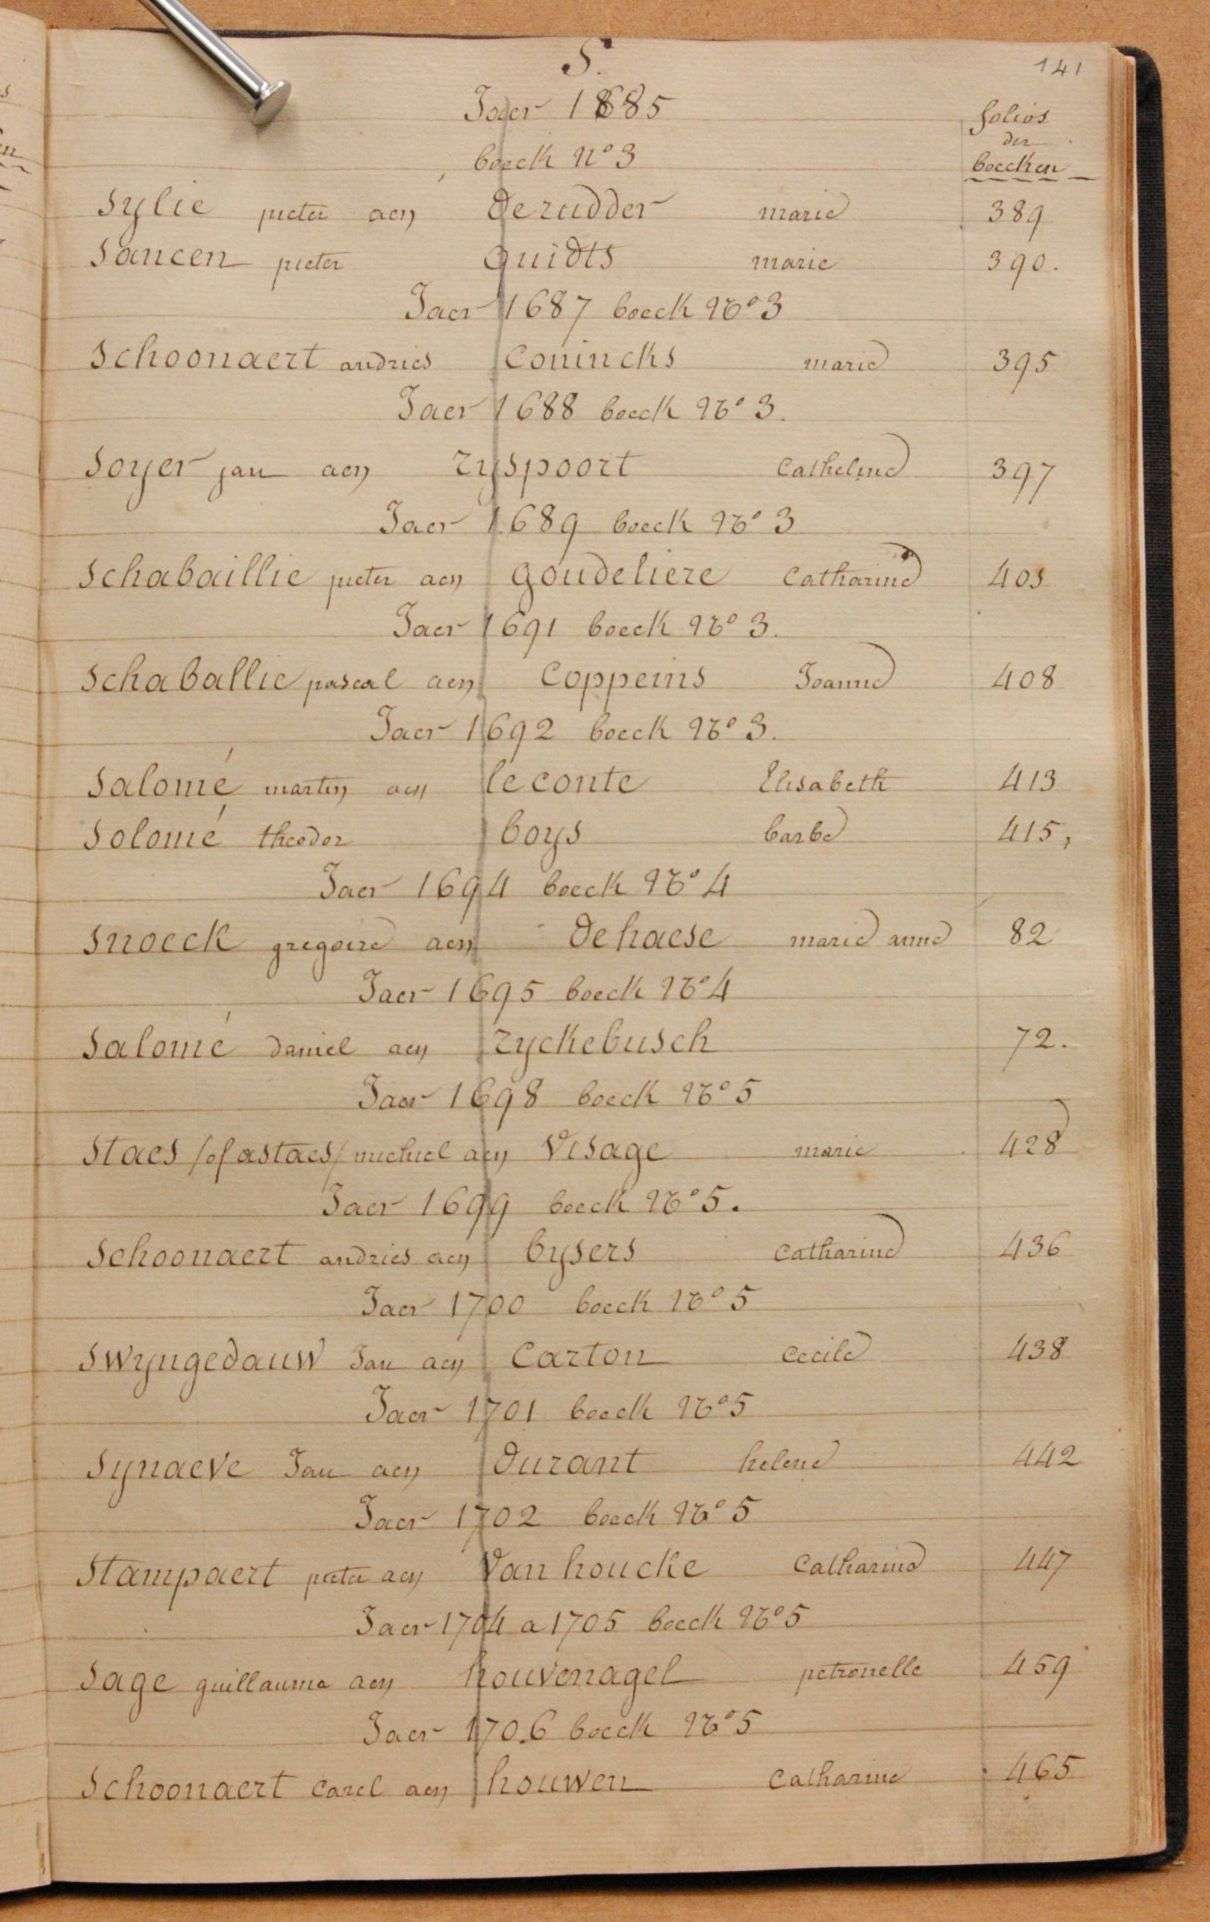 S.
141
Jaer 1685
folios
der
boecken
boeck N° 3
Sylie pieter aen Derudder marie 389
Sancen pieter Guidts marie 390.
Jaer 1687 boeck N° 3
Schoonaert andries Conincks marie 395
Jaer 1688 boeck N° 3.
Soyer jan aen ryspoort Catheline 397
Jaer 1689 boeck N° 3
Schabaillie pieter aen goudeliere Catharine 403
Jaer 1691 boeck N° 3.
Schaballie pascal aen Coppeins Joanne 408
Jaer 1692 boeck N° 3.
Salomé martin aen leconte Elisabeth 413
Solomé theodor boys barbe 415,
Jaer 1694 boeck N° 4
Snoeck gregoire aen Dehaese marie anne 82
Jaer 1695 boeck N° 4
Salomé daniel aen ryckebusch 72.
Jaer 1698 boeck N° 5
Staes /of astaes/ michiel aen Visage marie 428
Jaer 1699 boeck N° 5.
Schoonaert andries aen bysers Catharine 436
Jaer 1700 boeck N° 5
Swyngedauw Jan aen Carton Cecile 438
Jaer 1701 boeck N° 5
Synaeve Jan aen Durant helene 442
Jaer 1702 boeck N° 5
Stampaert pieter aen Vanhoucke Catharine 447
Jaer 1704 a 1705 boeck N° 5
Sage guillaume aen houvenagel petronelle 459
Jaer 1706 boeck N° 5
Schoonaert Carel aen houwen Catharine 465